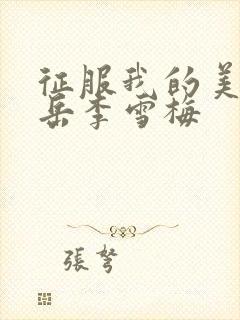 征服我的美
岳李雪梅
張弩